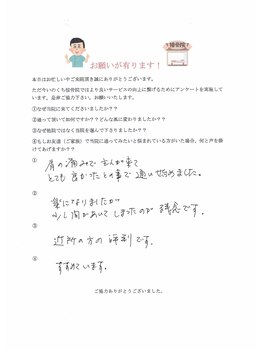 接骨院
お願いが有ります！
本日はお忙しい中ご来院頂き誠にありがとうございます。
ただ今いのくち接骨院ではより良いサービスの向上に繋げるためにアンケートを実施して
います。是非ご協力下さい。お願いいたします。
①なぜ当院に来てくださいましたか？？
②通って頂いて如何ですか？？どんな風に変わりましたか？？
③なぜ他院ではなく当院を選んで下さりましたか？？
④もしお友達（ご家族）で当院に通ってみたいと悩まれている方がいた場合、何と声を掛
けてあげますか？？
①
肩の痛みで主人が来て
とても良かったとの事で通い始めました。
②
楽になりましたが
少し間があいてしまったのが残念です。
③
近所の方の評判です。
④
すすめています。
ご協力ありがとうございました。